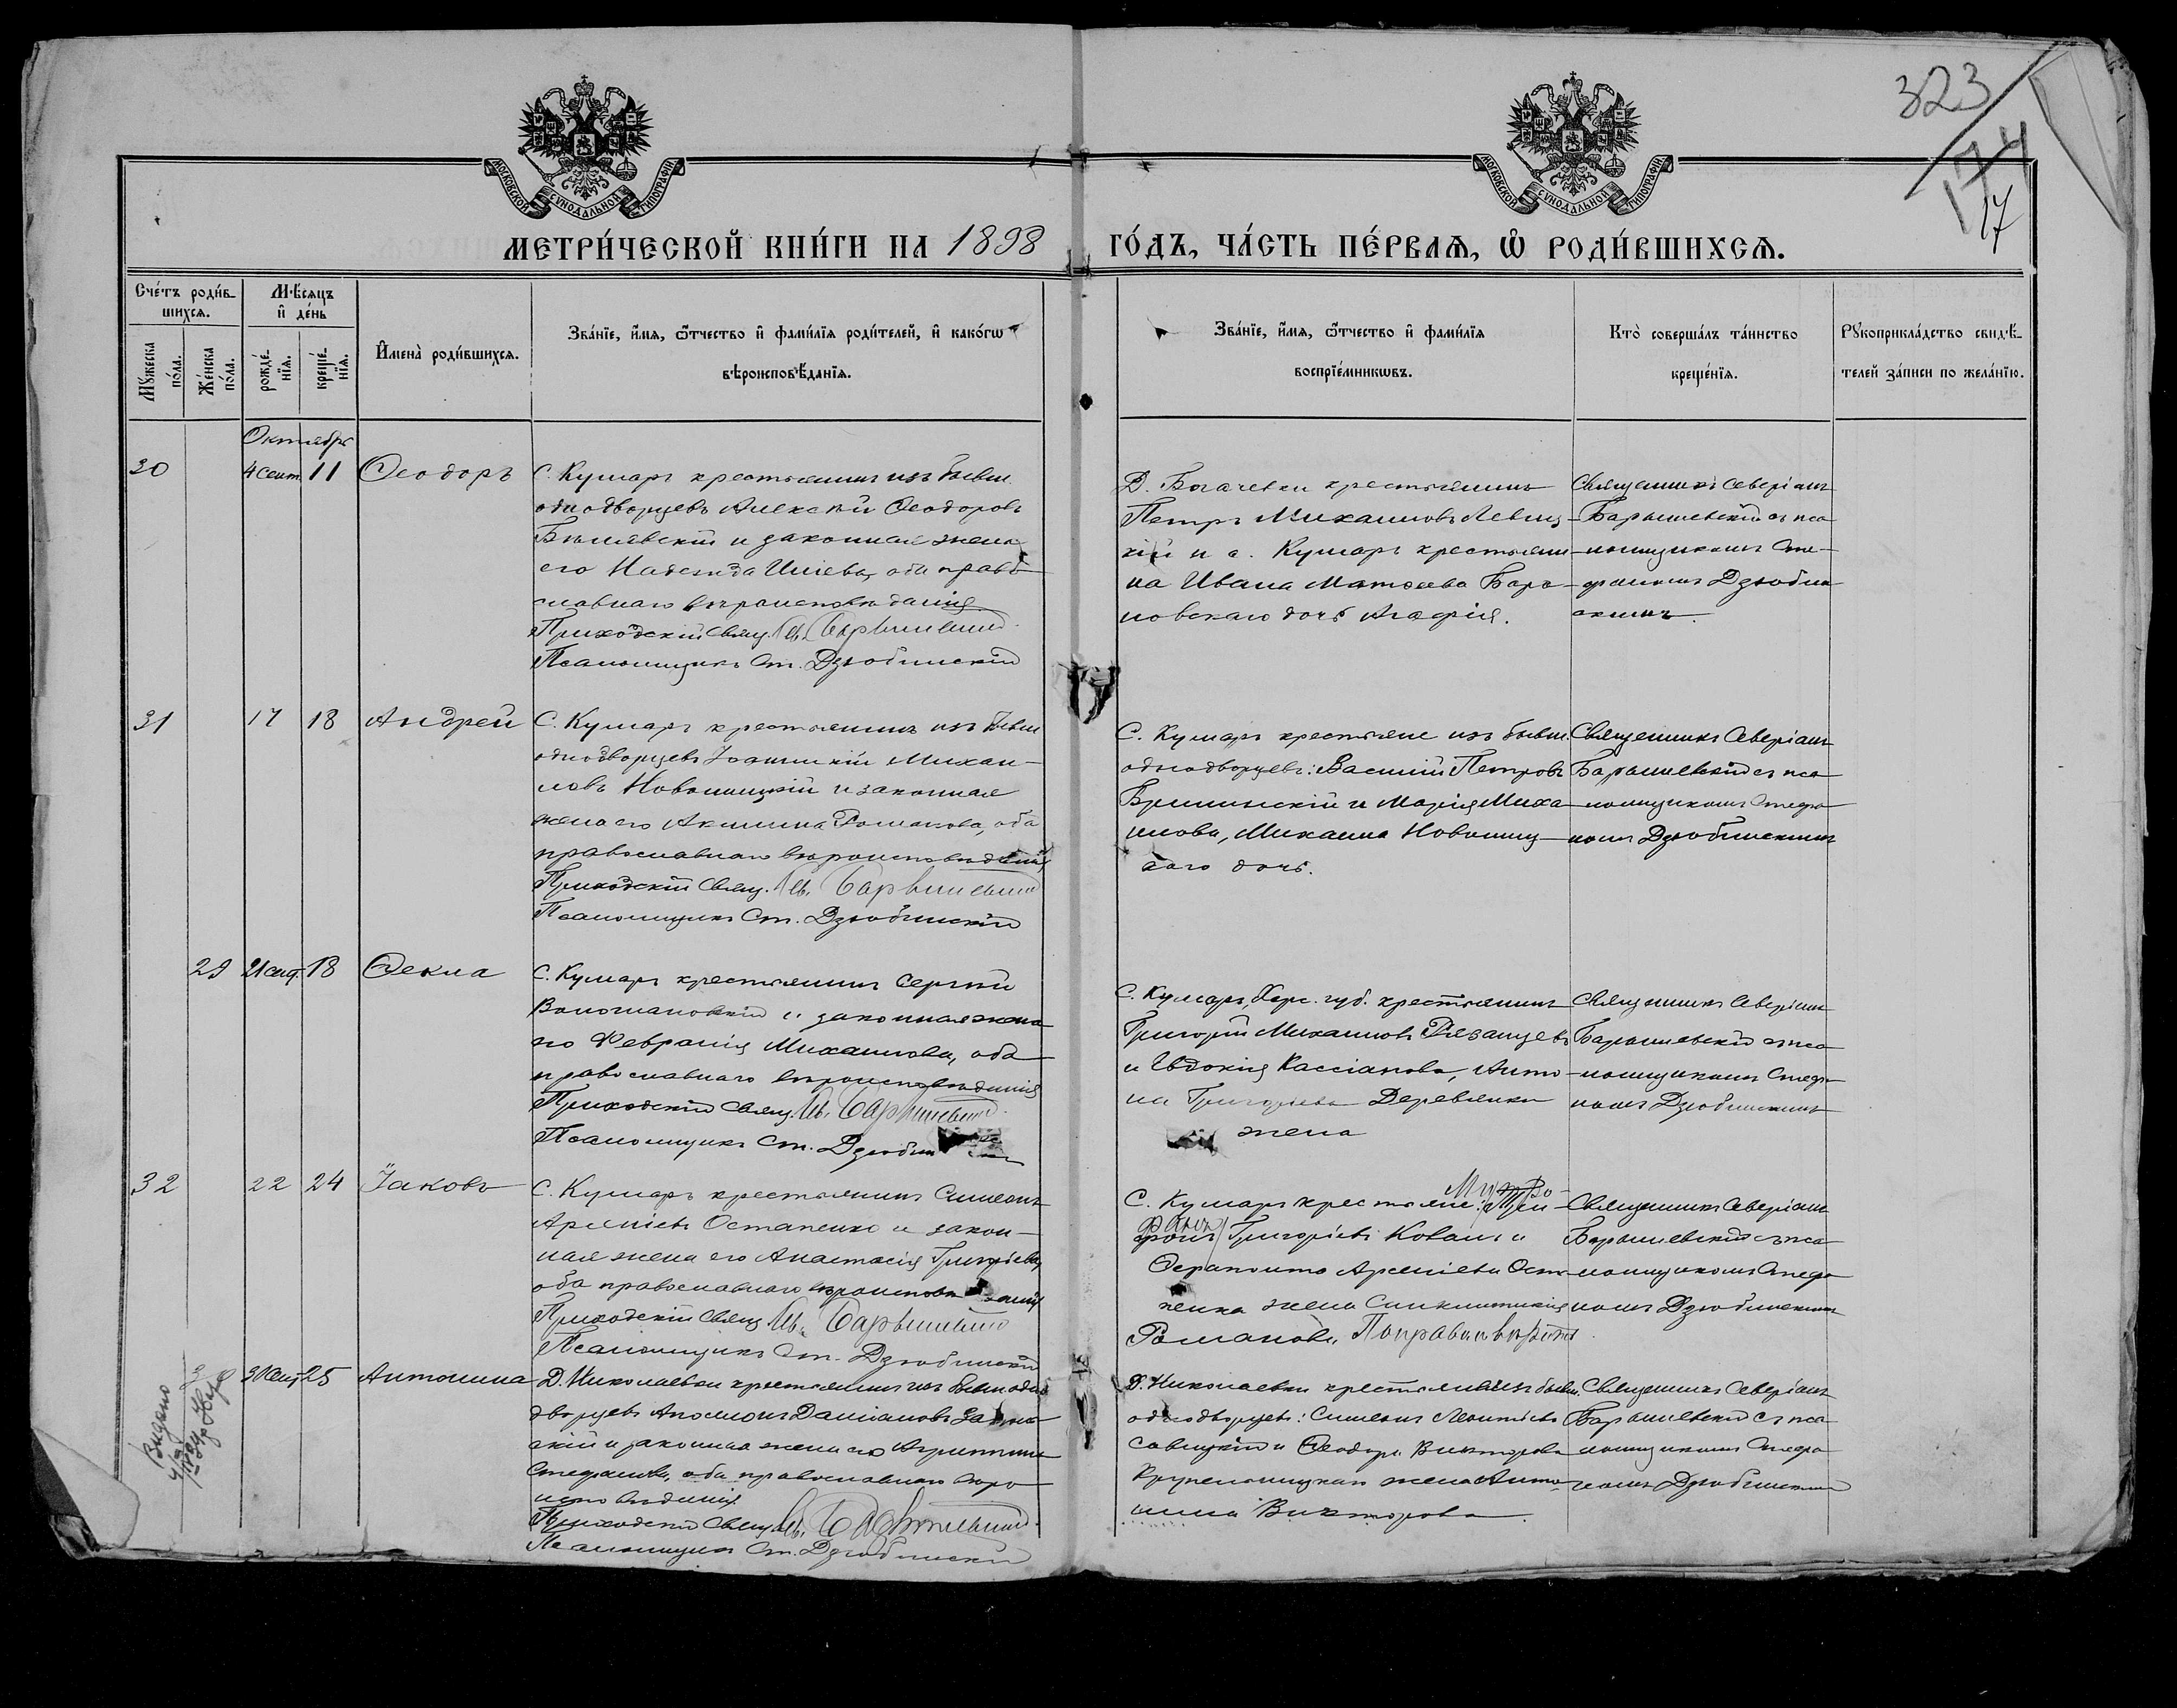 323
174
17
МОСКОВСКОЙ СѴНОДАЛЬНОЙ ТИПОГРАФІИ
МОСКОВСКОЙ СѴНОДАЛЬНОЙ ТИПОГРАФІИ
МЕТРИ́ЧЕСКОЙ КНИ́ГИ НА 1898
ГО́ДЪ, ЧА́СТЬ ПЕ́РВАѦ, Ѽ РОДИ́ВШИХСѦ.
Сче́тъ роди́в-
шихсѧ.
Мꙋ́жеска по́ла.
Же́нска по́ла.
Мѣ́сѧцъ и҆ де́нь
рожде́-
нїѧ.
креще́-
нїѧ.
И҆мена̀ роди́вшихсѧ.
Зва́нїе, и҆́мѧ, ѻ҆́тчество и҆ фами́лїѧ роди́телей, и҆ како́гѡ
вѣроисповѣ́данїѧ.
Зва́нїе, и҆́мѧ, ѻ҆́тчество и҆ фами́лїѧ
воспрїе́мникѡвъ.
Кто̀ соверша́лъ та́инство
креще́нїѧ.
Рꙋкоприкла́дство свидѣ́-
телей за́писи по жела́нїю.
Октябрь
30
4 Сент.
11
Ѳеодоръ
С. Кумаръ крестьянинъ изъ бывш.
однодворцевъ Алексѣй Ѳеодоровъ
и законная жена
его Надежда оба право
славнаго вѣроисповѣданія
Приходскій Свящ. Св. Барышевскій
Псаломщикъ Ст. Дзюбинскій
Д. Богачевки крестьянинъ
Петръ Михаиловъ Левиц-
кій и с. Кумаръ крестьяни-
на Ивана Матѳеева Бара-
новскаго дочь Агафія.
Священникъ Северіанъ
Барышевскій съ пса-
ломщикомъ Сте-
фаномъ Дзюбин
скимъ.
31
17
18
Андрей
С. Кумаръ крестьянинъ изъ бывш
однодворцевъ Іоанникій Михаи-
ловъ Новошицкій и законная
жена его Акилина Романова, оба
православнаго вѣроисповѣданія
Приходскій Свящ. Св. Барышевскій
Псаломщикъ Ст. Дзюбинскій
С. Кумаръ крестьяне изъ бывш.
однодворцевъ: Василій Петровъ
и Марія Миха-
илова, Михаила Новошиц-
каго дочь.
Священникъ Северіанъ
Барышевскій съ пса-
ломщикомъ Стефа-
номъ Дзюбинскимъ
29
21 Сент.
18
Ѳекла
С. Кумаръ крестьянинъ Сергѣй
и законная жена
его Февронія Михаилова, оба
православнаго вѣроисповѣданія
Приходскій Свящ. Св. Барышевскій
Псаломщикъ Ст. Дзюбин
С. Кумаръ, Харс. губ. крестьянинъ
Григорій Михаиловъ Рязанцевъ
и Евдокія Кассіанова, Анто-
на Григорьева Деревянки
жена
Священникъ Северіанъ
Барышевскій съ пса-
ломщикомъ Стефа-
номъ Дзюбинскимъ
32
22
24
Іаковъ
С. Кумаръ крестьянинъ Симеонъ
Арсеніевъ Остапенко и закон-
ная жена его Анастасія Григорьева,
оба православнаго вѣроисповѣданія
Приходскій Свящ. Св. Барышевскій
Псаломщикъ Ст. Дзюбинскій
Митро-
С. Кумаръ крестьяне: Три-
фанъ
фонъ Григорьевъ Коваль и
Ѳерапонта Арсеніева Оста-
пенка жена Синклитикія
Романова.
Священникъ Северіанъ
Барышевскій съ пса-
ломщикомъ Стефа-
номъ Дзюбинскимъ
30
30 Сент
25
Антонина
Видано
Д. Николаевки крестьянинъ изъ бывш одно
дворцевъ Даміановъ
скій и законная жена его Агриппина
Стефанова, оба православнаго вѣро-
исповѣданія
Приходскій Свящ. Св. Барышевскій
Псаломщикъ Ст. Дзюбинскій
Д. Николаевки крестьяне изъ бывш.
однодворцевъ: Симеонъ Леонтьевъ
Савицкій и Ѳеодора Викторова
жена Анто-
нина Викторова
Священникъ Северіанъ
Барышевскій съ пса-
ломщикомъ Стефа-
номъ Дзюбинскимъ